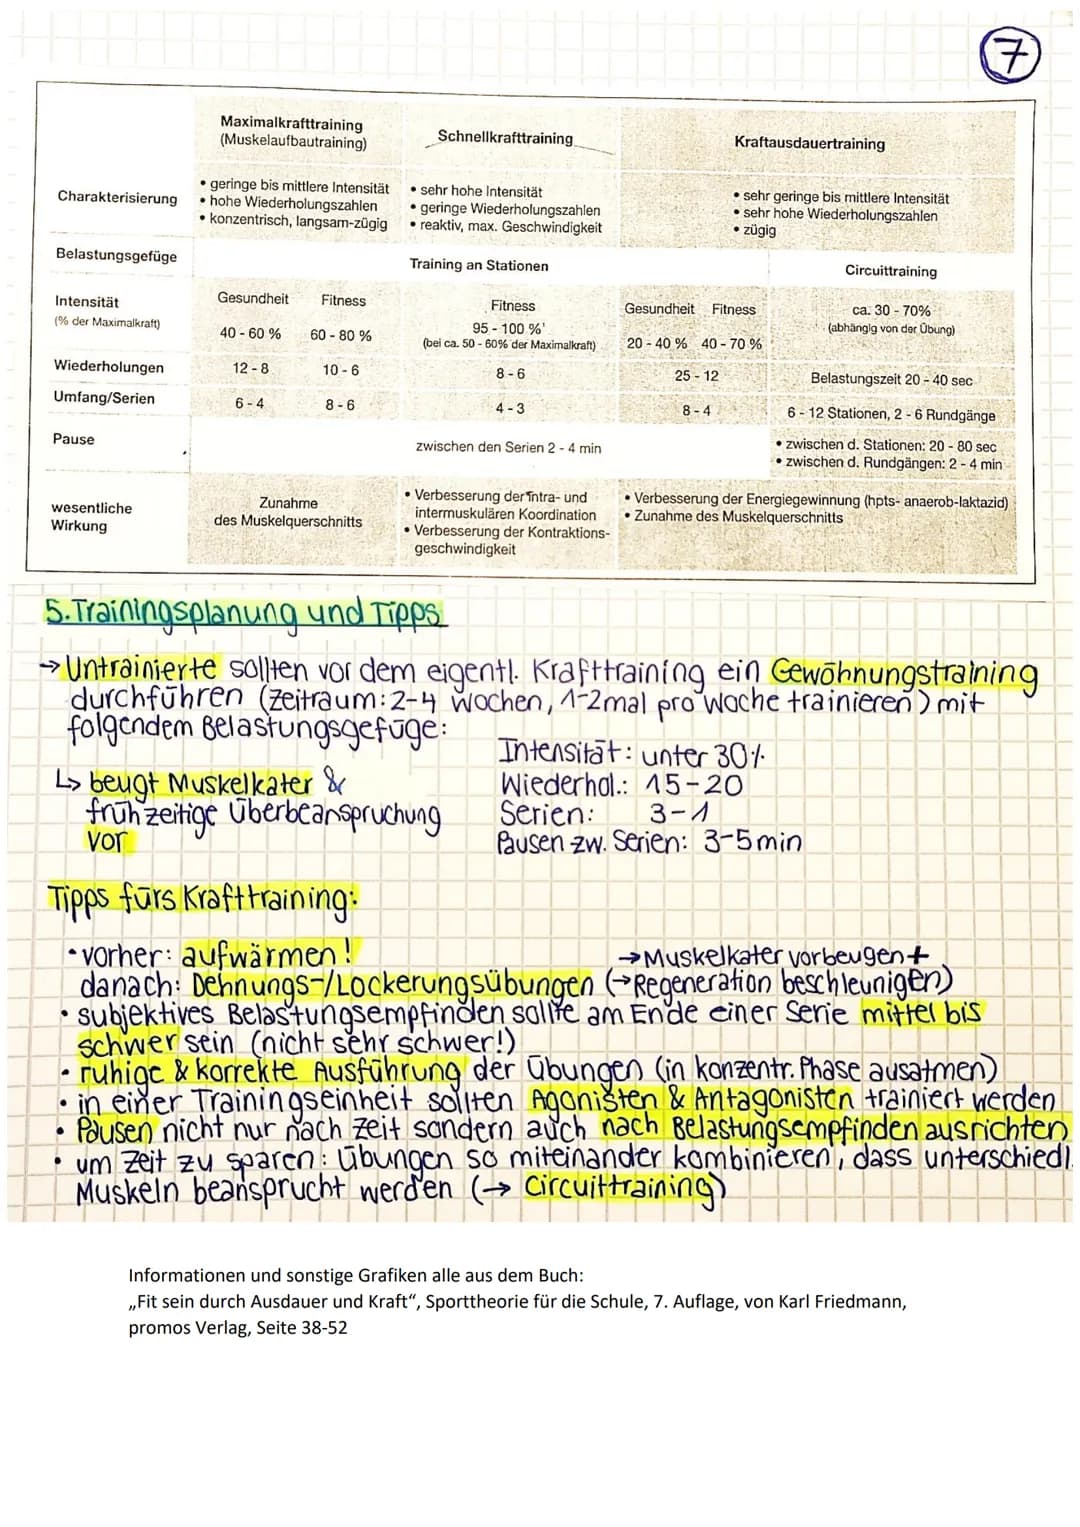 7
Maximalkrafttraining
(Muskelaufbautraining)
Schnellkrafttraining
Kraftausdauertraining
Charakterisierung
• geringe bis mittlere Intensität
• hohe Wiederholungszahlen
• konzentrisch, langsam-zügig
• sehr hohe Intensität
• geringe Wiederholungszahlen
• reaktiv, max. Geschwindigkeit
• sehr geringe bis mittlere Intensität
• sehr hohe Wiederholungszahlen
• zügig
Belastungsgefüge
Training an Stationen
Circuittraining
Intensität
(% der Maximalkraft)
Gesundheit Fitness
40 - 60 % 60 - 80 %
Fitness
95 - 100 %'
(bei ca. 50 - 60% der Maximalkraft)
Gesundheit Fitness
20 - 40 % 40 - 70 %
ca. 30 - 70%
(abhängig von der Übung)
Wiederholungen
12 - 8 10 - 6 8 - 6 25 - 12 Belastungszeit 20 - 40 sec
Umfang/Serien
6 - 4 8 - 6 4 - 3 8 - 4 6 - 12 Stationen, 2 - 6 Rundgänge
Pause
zwischen den Serien 2 - 4 min
• zwischen d. Stationen: 20 - 80 sec
• zwischen d. Rundgängen: 2 - 4 min
wesentliche
Wirkung
Zunahme
des Muskelquerschnitts
• Verbesserung der intra- und
intermuskulären Koordination
• Verbesserung der Kontraktions-
geschwindigkeit
• Verbesserung der Energiegewinnung (hpts- anaerob-laktazid)
• Zunahme des Muskelquerschnitts
5. Trainingsplanung und Tipps
→ Untrainierte sollten vor dem eigentl. Krafttraining ein Gewöhnungstraining
durchführen (Zeitraum: 2-4 Wochen, 1-2mal pro Woche trainieren) mit
folgendem Belastungsgefüge:
Intensität: unter 30%
Wiederhol.: 15-20
Serien: 3-1
Pausen zw. Serien: 3-5min
↳ beugt Muskelkater &
frühzeitige Überbeanspruchung
vor
Tipps fürs Krafttraining:
• vorher: aufwärmen!
→ Muskelkater vorbeugen +
danach: Dehnungs-/Lockerungsübungen (→ Regeneration beschleunigen)
• subjektives Belastungsempfinden sollte am Ende einer Serie mittel bis
schwer sein (nicht sehr schwer!)
• ruhige & korrekte Ausführung der Übungen (in konzentr. Phase ausatmen)
• in einer Trainingseinheit sollten Agonisten & Antagonisten trainiert werden
• Pausen nicht nur nach Zeit sondern auch nach Belastungsempfinden ausrichten
• um Zeit zu sparen: Übungen so miteinander kombinieren, dass unterschiedl.
Muskeln beansprucht werden (→ Circuittraining)
Informationen und sonstige Grafiken alle aus dem Buch:
„Fit sein durch Ausdauer und Kraft“, Sporttheorie für die Schule, 7. Auflage, von Karl Friedmann,
promos Verlag, Seite 38-52